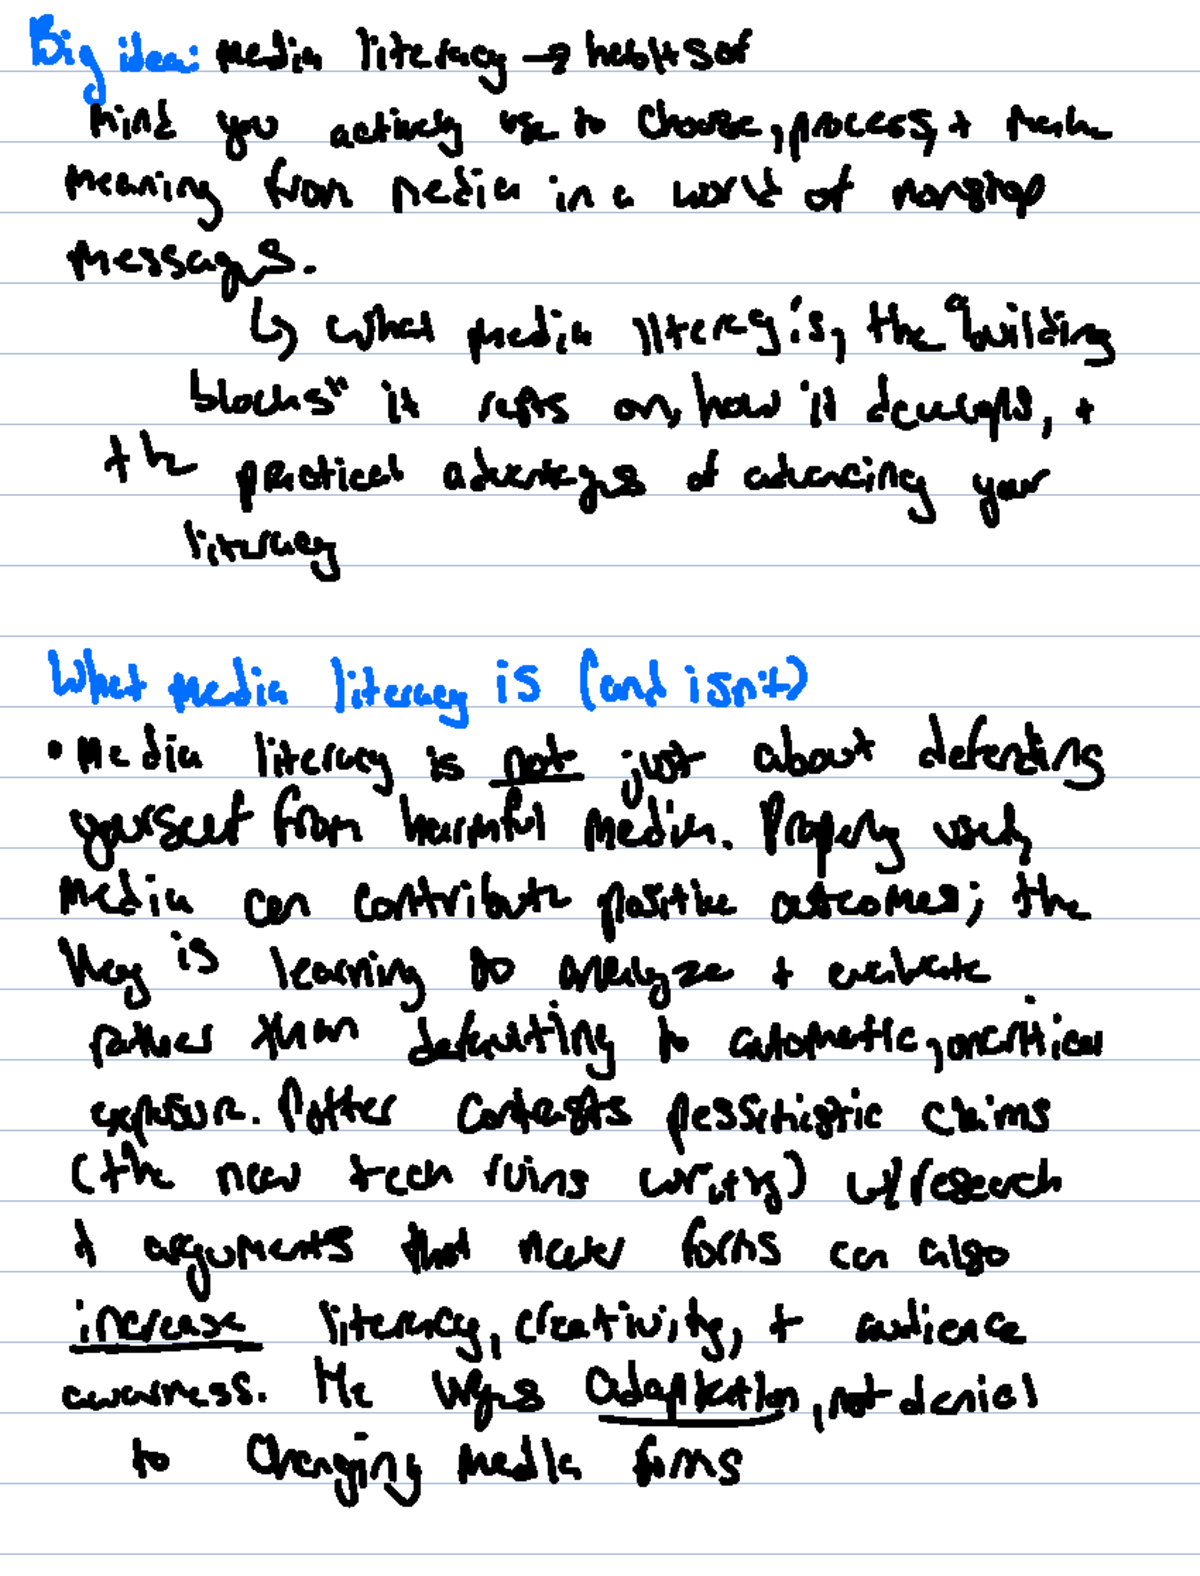 Big idea: media literacy → habits of
mind you actively use to choose, process, + make
meaning from media in a world of nonstop
messages.
↳ what media literacy is, the "building
blocks" it rests on, how it develops, +
the practical advantages of advancing your
literacy
What media literacy is (and isn't)
• Media literacy is not just about defending
yourself from harmful media. Properly used,
media can contribute positive outcomes; the
key is learning to analyze + evaluate
rather than defaulting to automatic, uncritical
exposure. Potter contests pessimistic claims
(the new tech ruins writing) w/ research
+ arguments that newer forms can also
increase literacy, creativity, + audience
awareness. He urges adaptation, not denial
to changing media forms